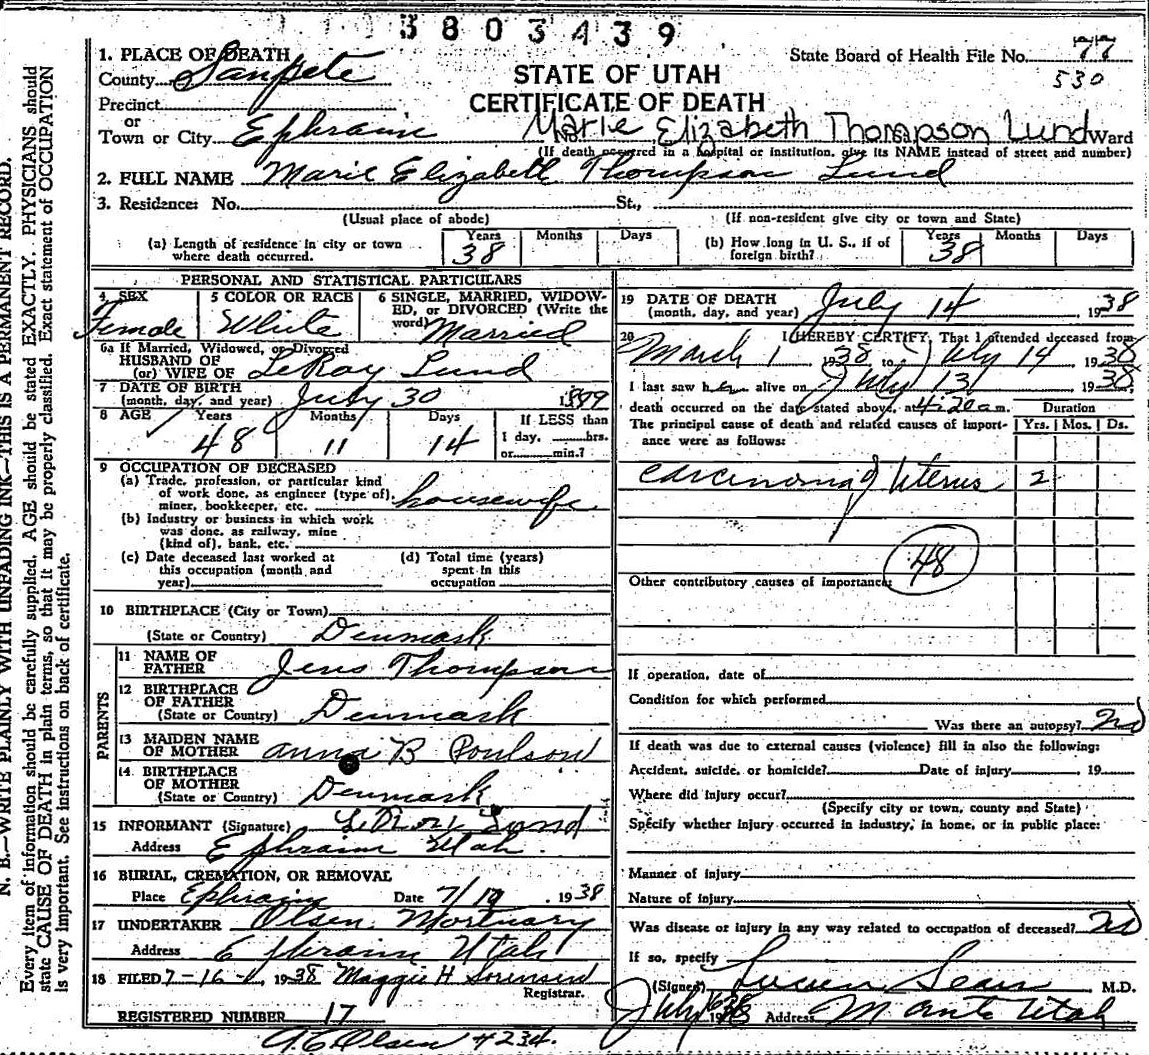 3803439
1. PLACE OF DEATH
County Sanpete
Precinct
or
Town or City Ephraim
STATE OF UTAH
CERTIFICATE OF DEATH
State Board of Health File No. 77
530
Marie Elizabeth Thompson Lund Ward
(If death occurred in a hospital or institution, give its NAME instead of street and number)
2. FULL NAME Marie Elizabeth Thompson Lund
3. Residence: No. St.,
(Usual place of abode) (If non-resident give city or town and State)
(a) Length of residence in city or town where death occurred. Years 38 Months Days
(b) How long in U. S., if of foreign birth? Years 38 Months Days
PERSONAL AND STATISTICAL PARTICULARS
4 SEX Female
5 COLOR OR RACE White
6 SINGLE, MARRIED, WIDOWED, or DIVORCED (Write the word) Married
6a If Married, Widowed, or Divorced
HUSBAND OF
(or) WIFE OF LeRoy Lund
7 DATE OF BIRTH
(month, day, and year) July 30
8 AGE Years 48 Months 11 Days 14
If LESS than
1 day, hrs.
or min.?
9 OCCUPATION OF DECEASED
(a) Trade, profession, or particular kind
of work done, as engineer (type of),
miner, bookkeeper, etc. housewife
(b) Industry or business in which work
was done, as railway, mine
(kind of), bank, etc.
(c) Date deceased last worked at
this occupation (month and
year)
(d) Total time (years)
spent in this
occupation
10 BIRTHPLACE (City or Town)
(State or Country) Denmark
PARENTS
11 NAME OF
FATHER Jens Thompson
12 BIRTHPLACE
OF FATHER
(State or Country) Denmark
13 MAIDEN NAME
OF MOTHER Anna B Poulson
14 BIRTHPLACE
OF MOTHER
(State or Country) Denmark
15 INFORMANT (Signature) LeRoy Lund
Address Ephraim Utah.
16 BURIAL, CREMATION, OR REMOVAL
Place Ephraim Date 7/19 . 1938
17 UNDERTAKER Olsen Mortuary
Address Ephraim Utah
18 FILED 7-16- , 1938 Maggie H Sorensen
Registrar.
REGISTERED NUMBER 17
A.E. Olsen #234.
19 DATE OF DEATH
(month, day, and year) July 14 , 1938
20 I HEREBY CERTIFY, That I attended deceased from
March 1 1938 to July 14 1938
I last saw her alive on July 13 1938
death occurred on the date stated above, at 4:20 a m.
The principal cause of death and related causes of importance were as follows:
Duration
Yrs. Mos. Ds.
carcinoma of Uterus 2
48
Other contributory causes of importance:
If operation, date of
Condition for which performed
Was there an autopsy? no
If death was due to external causes (violence) fill in also the following:
Accident, suicide, or homicide? Date of injury , 19
Where did injury occur?
(Specify city or town, county and State)
Specify whether injury occurred in industry, in home, or in public place:
Manner of injury
Nature of injury
Was disease or injury in any way related to occupation of deceased? no
If so, specify
(Signed) Lucien Sears M.D.
July 1938 Address Manti Utah
N. B.—WRITE PLAINLY WITH UNFADING INK—THIS IS A PERMANENT RECORD.
Every item of information should be carefully supplied. AGE should be stated EXACTLY. PHYSICIANS should
state CAUSE OF DEATH in plain terms, so that it may be properly classified. Exact statement of OCCUPATION
is very important. See instructions on back of certificate.